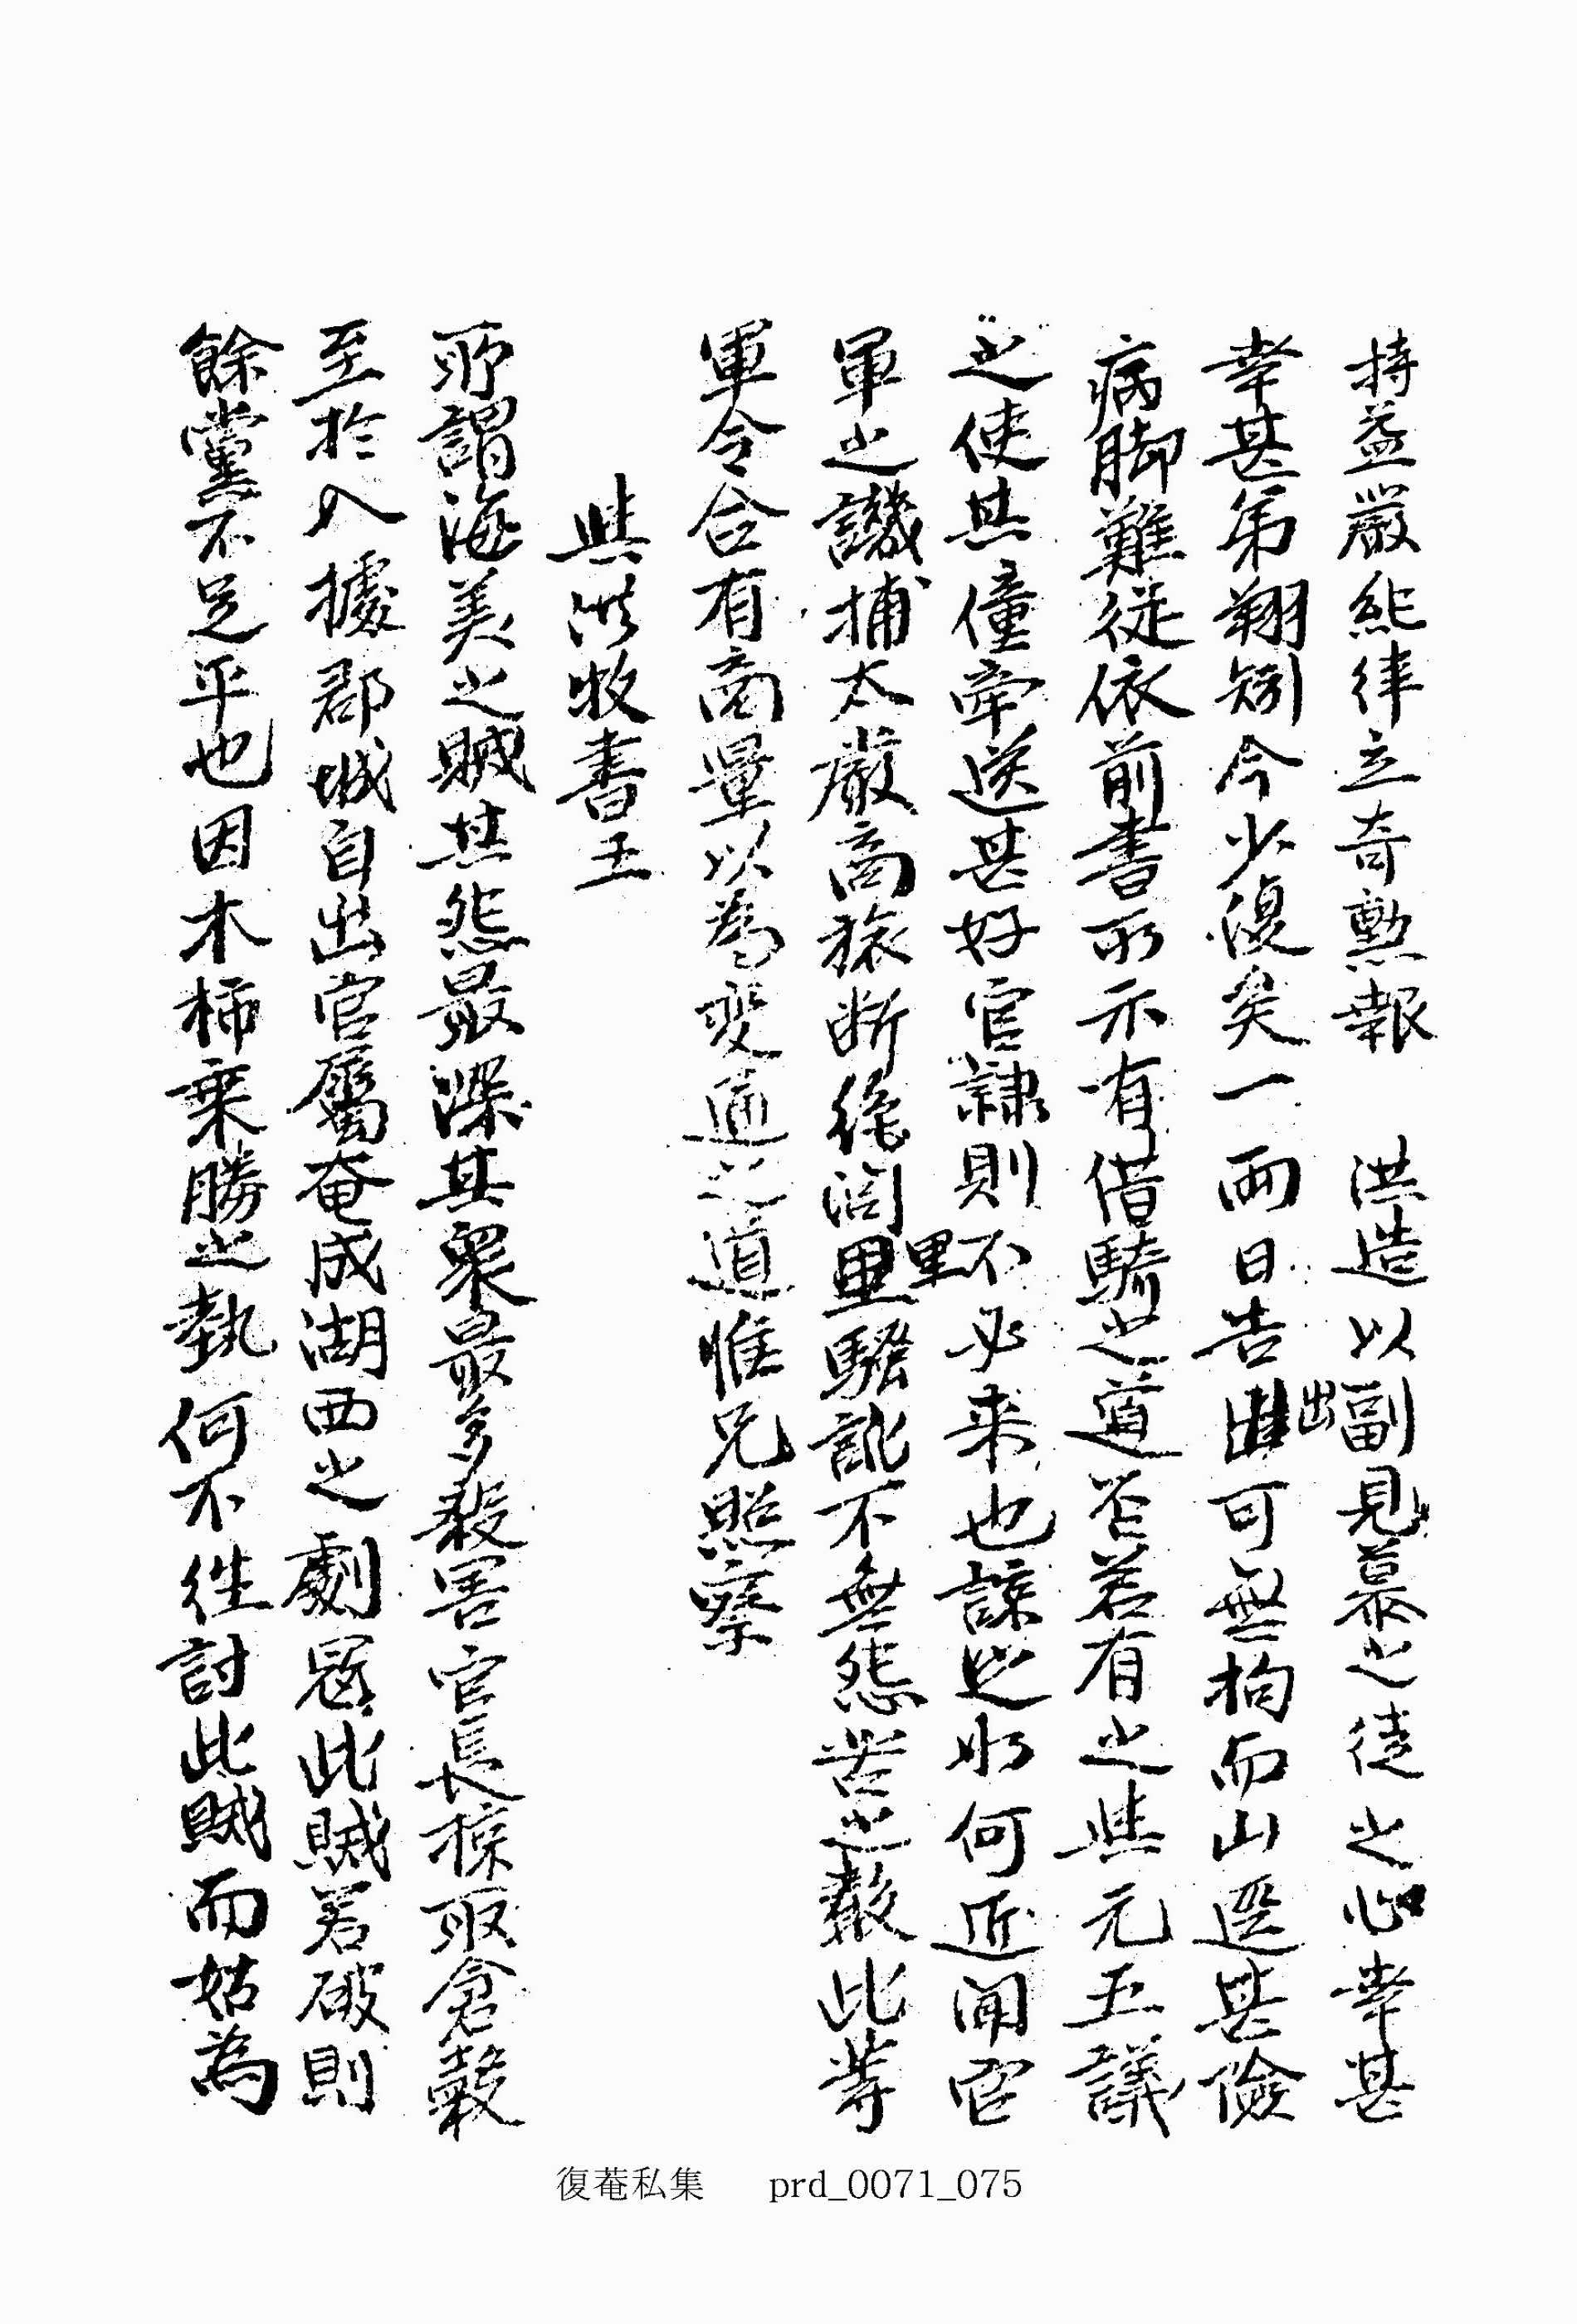 持益嚴紀律立奇勲報 洪造以副見慕之徒之心幸甚
幸甚弟翔矧今少復矣一兩日告出可無拘而山逕甚險
病脚難徒依前書所示有借騎之道否若有之與元五議
之使其僮牽送甚好官隷則不必来也諒之如何近聞官
軍之譏捕太嚴商旅断絶閭里騷訛不無怨苦之歎此等
軍令合有商量以為變通之道惟兄照察
與洪牧書 五
所謂海美之賊其怨最深其衆最多殺害官長掠取倉穀
至於入據郡城自出官屬奄成湖西之劇寇此賊若破則
餘黨不足平也因木柿乗勝之勢何不往討此賊而姑為
復菴私集 prd_0071_075